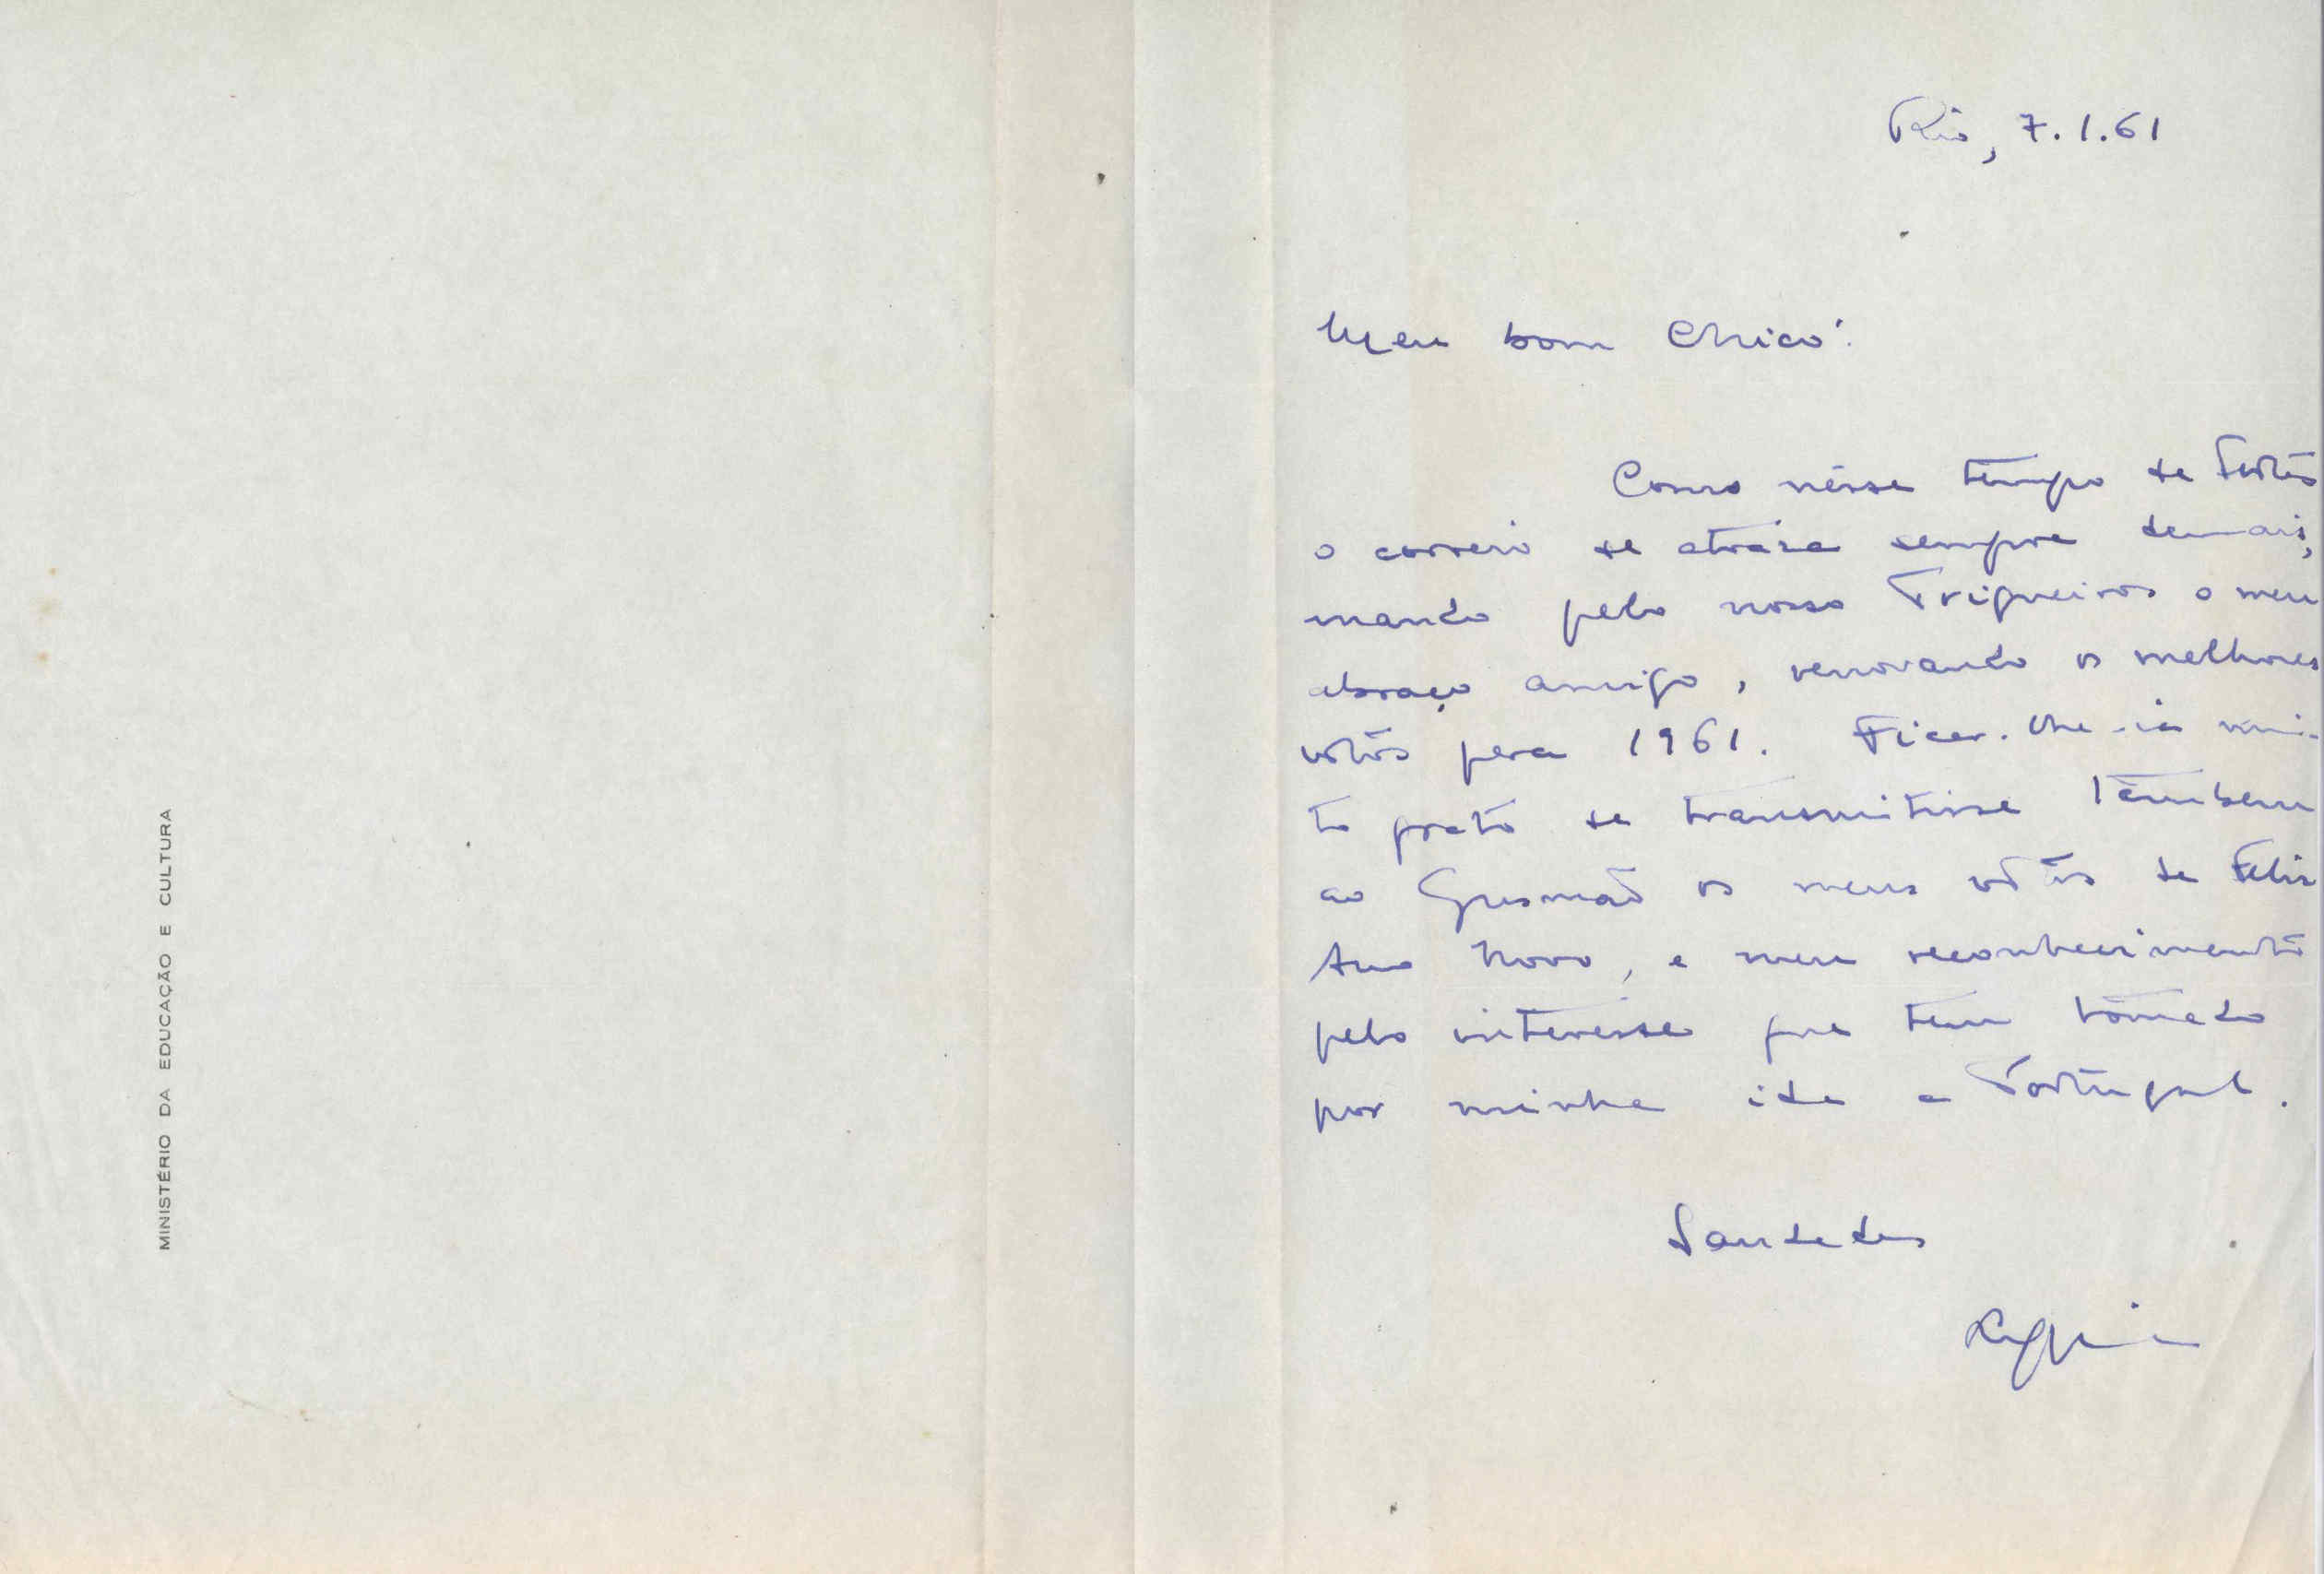 MINISTÉRIO DA EDUCAÇÃO E CULTURA
Rio, 7.1.61
Meu bom Chico:
Como nésse tempo de festas
o correio se atraza sempre demais,
mando pelo nosso Trigueiros o meu
abraço amigo, renovando os melhores
votos para 1961. Ficar-lhe-ia mui-
to grato se transmitisse tambem
ao Gusmão os meus votos de Feliz
Ano Novo, e meu reconhecimento
pelo interesse que tem tomado
por minha ida a Portugal.
Saudades